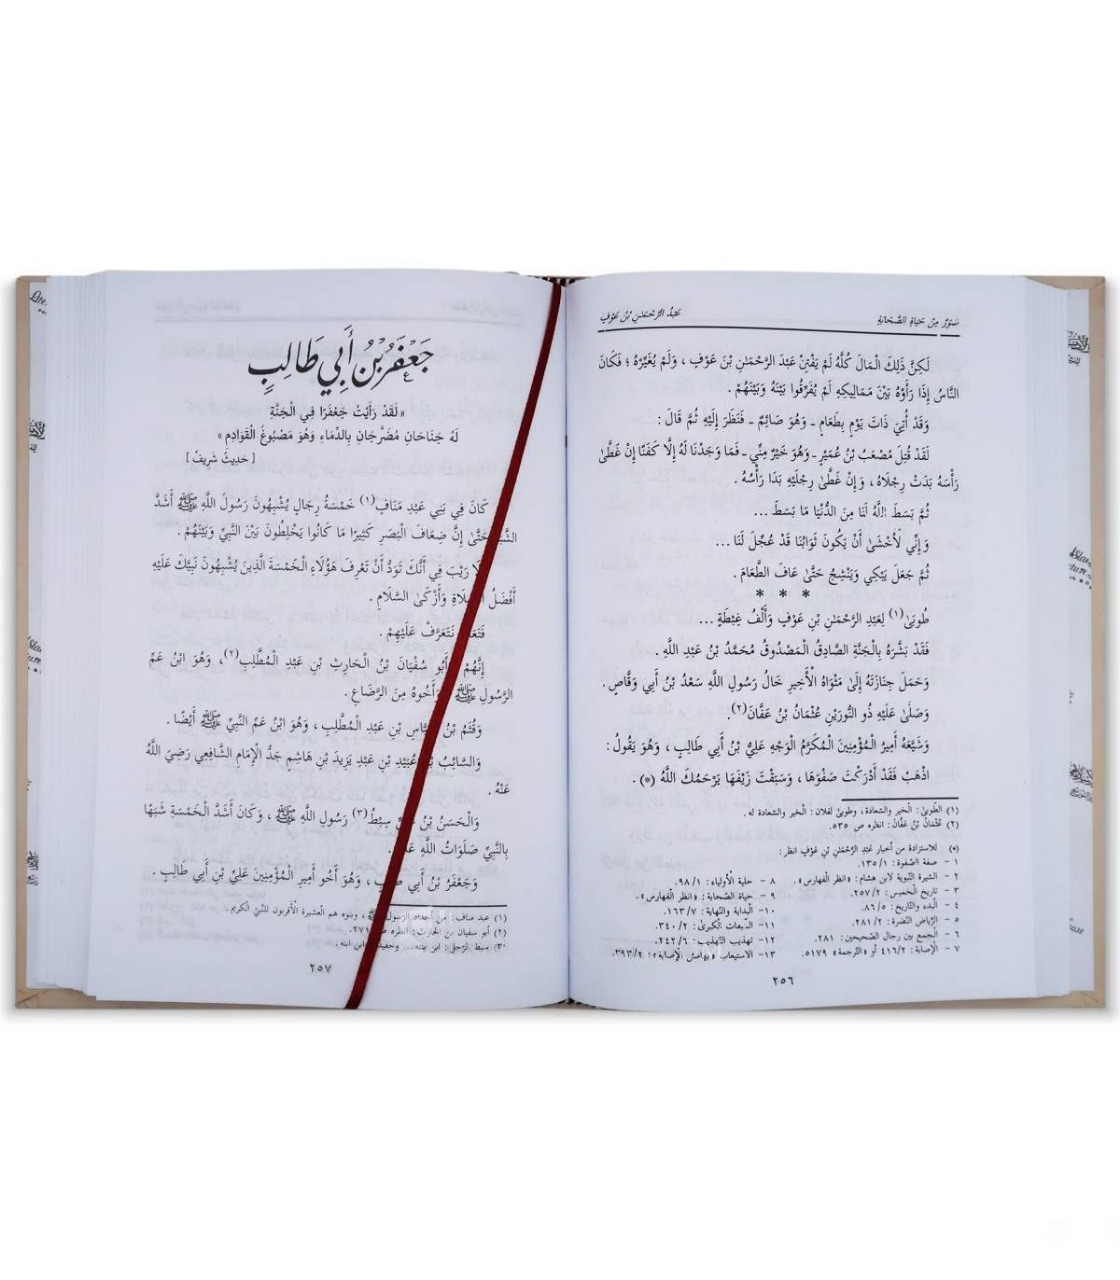 صُوَرٌ مِنْ حَيَاةِ الصَّحَابَةِ عَبْدُ الرَّحْمٰنِ بْنُ عَوْفٍ
لٰكِنَّ ذٰلِكَ الْمَالَ كُلَّهُ لَمْ يَفْتِنْ عَبْدَ الرَّحْمٰنِ بْنَ عَوْفٍ ، وَلَمْ يُغَيِّرْهُ ؛ فَكَانَ
النَّاسُ إِذَا رَأَوْهُ بَيْنَ مَمَالِيكِهِ لَمْ يُفَرِّقُوا بَيْنَهُ وَبَيْنَهُمْ .
وَقَدْ أُتِيَ ذَاتَ يَوْمٍ بِطَعَامٍ ـ وَهُوَ صَائِمٌ ـ فَنَظَرَ إِلَيْهِ ثُمَّ قَالَ :
لَقَدْ قُتِلَ مُصْعَبُ بْنُ عُمَيْرٍ ـ وَهُوَ خَيْرٌ مِنِّي ـ فَمَا وَجَدْنَا لَهُ إِلَّا كَفَنًا إِنْ غَطَّىٰ
رَأْسَهُ بَدَتْ رِجْلَاهُ ، وَإِنْ غَطَّىٰ رِجْلَيْهِ بَدَا رَأْسُهُ .
ثُمَّ بَسَطَ اللَّهُ لَنَا مِنَ الدُّنْيَا مَا بَسَطَ ...
وَإِنِّي لَأَخْشَىٰ أَنْ يَكُونَ ثَوَابُنَا قَدْ عُجِّلَ لَنَا ...
ثُمَّ جَعَلَ يَبْكِي وَيَنْشِجُ حَتَّىٰ عَافَ الطَّعَامَ .
* * *
طُوبَىٰ(١) لِعَبْدِ الرَّحْمٰنِ بْنِ عَوْفٍ وَأَلْفُ غِبْطَةٍ ...
فَقَدْ بَشَّرَهُ بِالْجَنَّةِ الصَّادِقُ الْمَصْدُوقُ مُحَمَّدُ بْنُ عَبْدِ اللَّهِ .
وَحَمَلَ جِنَازَتَهُ إِلَىٰ مَثْوَاهُ الْأَخِيرِ خَالُ رَسُولِ اللَّهِ سَعْدُ بْنُ أَبِي وَقَّاصٍ .
وَصَلَّىٰ عَلَيْهِ ذُو النُّورَيْنِ عُثْمَانُ بْنُ عَفَّانَ(٢).
وَشَيَّعَهُ أَمِيرُ الْمُؤْمِنِينَ الْمُكَرَّمُ الْوَجْهِ عَلِيُّ بْنُ أَبِي طَالِبٍ ، وَهُوَ يَقُولُ :
اذْهَبْ فَقَدْ أَدْرَكْتَ صَفْوَهَا ، وَسَبَقْتَ زَيْفَهَا يَرْحَمُكَ اللَّهُ (*)
(١) الطُّوبَىٰ : الْخير والسّعادة، وطوبىٰ لفلان: الْخير والسّعادة له.
(٢) عُثْمَانُ بْنُ عَفَّانَ : انظره ص ٥٣٥.
(*) للاستزادة من أخبار عَبْدِ الرَّحْمٰنِ بْنِ عَوْفٍ انظر :
١ – صفة الصّفوة : ١٣٥/١.
٢ – السّيرة النّبوية لابن هشام : «انظر الْفهارس».
٣ – تاريخ الْخميس : ٢٥٧/٢.
٤ – الْبدء والتّاريخ : ٨٦/٥.
٥ – الرّياض النّضرة : ٢٨١/٢.
٦ – الْجمع بين رجال الصّحيحين : ٢٨١.
٧ – الْإصابة : ٤١٦/٢ أو «التّرجمة» ٥١٧٩.
٨ – حلية الْأولياء : ٩٨/١.
٩ – حياة الصّحابة : «انظر الْفهارس».
١٠ – الْبداية والنّهاية : ١٦٣/٧.
١١ – الطّبقات الْكبرىٰ : ٣٤٠/٢.
١٢ – تهذيب التّهذيب : ٢٤٢/٦.
١٣ – الاستيعاب «بهامش الْإصابة» : ٣٩٣/٢.
٢٥٦
جَعْفَرُ بْنُ أَبِي طَالِبٍ
« لَقَدْ رَأَيْتُ جَعْفَرًا فِي الْجَنَّةِ
لَهُ جَنَاحَانِ مُضَرَّجَانِ بِالدِّمَاءِ وَهُوَ مَصْبُوغُ الْقَوَادِمِ »
[ حَدِيثٌ شَرِيفٌ ]
كَانَ فِي بَنِي عَبْدِ مَنَافٍ(١) خَمْسَةُ رِجَالٍ يُشْبِهُونَ رَسُولَ اللَّهِ ﷺ أَشَدَّ
حَتَّىٰ إِنَّ ضِعَافَ الْبَصَرِ كَثِيرًا مَا كَانُوا يَخْلِطُونَ بَيْنَ النَّبِيِّ وَبَيْنَهُمْ .
رَيْبَ فِي أَنَّكَ تَوَدُّ أَنْ تَعْرِفَ هَؤُلَاءِ الْخَمْسَةَ الَّذِينَ يُشْبِهُونَ نَبِيَّكَ عَلَيْهِ
أَفْضَلُ الصَّلَاةِ وَأَزْكَىٰ السَّلَامِ .
نَتَعَرَّفْ عَلَيْهِمْ .
إِنَّهُمْ أَبُو سُفْيَانَ بْنُ الْحَارِثِ بْنِ عَبْدِ الْمُطَّلِبِ(٢)، وَهُوَ ابْنُ عَمِّ
الرَّسُولِ ﷺ وَأَخُوهُ مِنَ الرَّضَاعِ .
وَقُثَمُ بْنُ الْعَبَّاسِ بْنِ عَبْدِ الْمُطَّلِبِ ، وَهُوَ ابْنُ عَمِّ النَّبِيِّ ﷺ أَيْضًا .
وَالسَّائِبُ بْنُ عُبَيْدِ بْنِ عَبْدِ يَزِيدَ بْنِ هَاشِمٍ جَدُّ الْإِمَامِ الشَّافِعِي رَضِيَ اللَّهُ
عَنْهُ .
وَالْحَسَنُ بْنُ عَلِيٍّ سِبْطُ(٣) رَسُولِ اللَّهِ ﷺ ، وَكَانَ أَشَدَّ الْخَمْسَةِ شَبَهًا
بِالنَّبِيِّ صَلَوَاتُ اللَّهِ عَلَيْهِ .
وَجَعْفَرُ بْنُ أَبِي طَالِبٍ ، وَهُوَ أَخُو أَمِيرِ الْمُؤْمِنِينَ عَلِيِّ بْنِ أَبِي طَالِبٍ .
(١) عبد مناف : من أجداد الرّسول ﷺ ، وبنوه هم العشيرة الْأقربون للنّبيّ الْكريم .
(٢) أبو سفيان بن الْحارث : انظره ص ٢٧١.
(٣) سبط الرّجل : ابن بنته... وحفيده ابن ابنه .
٢٥٧